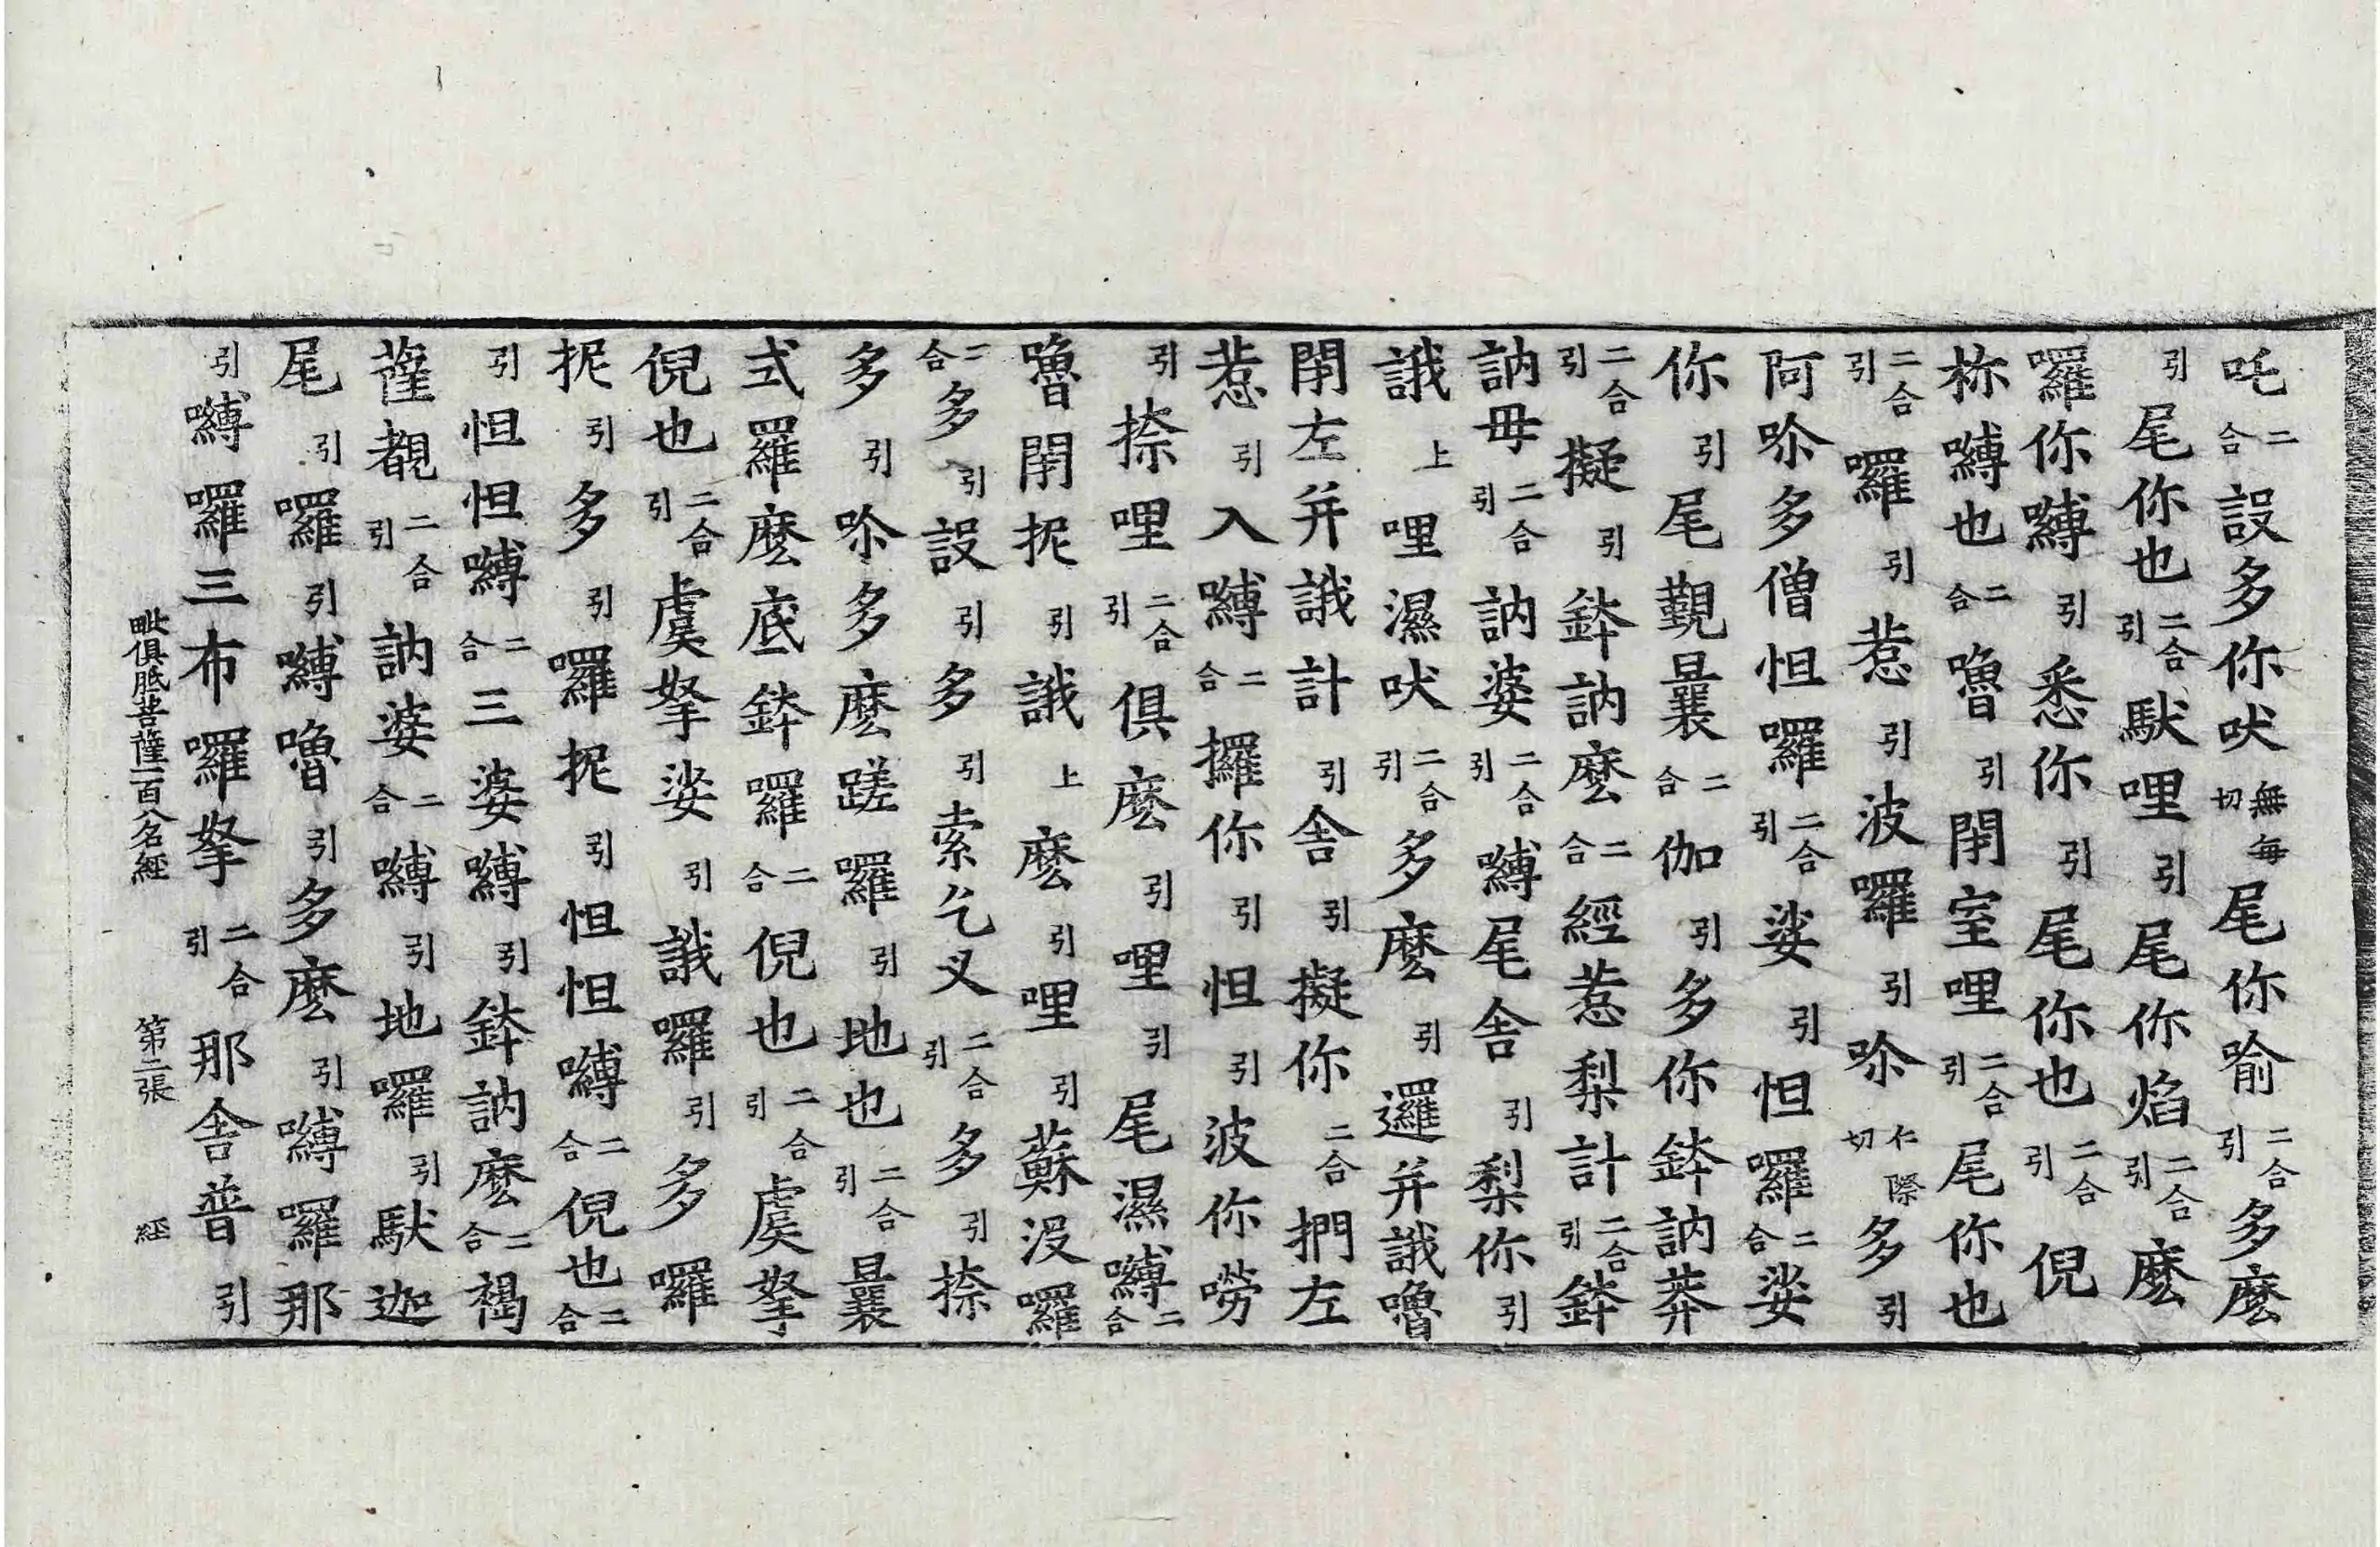 吒二合設多你吠無每切尾你喻二合引多麼
引尾你也二合引馱哩引尾你焰二合引麼
囉你嚩引悉你引尾你也二合引倪
祢嚩也二合嚕引閉室哩二合引尾你也
二合引囉引惹引波囉引吤仁際切多引
阿吤多僧怛囉二合引娑引怛囉二合娑
你引尾覲曩二合伽引多你鉢訥莽
二合引擬引鉢訥麼二合經惹梨計二合引鉢
訥毋二合引訥婆二合引嚩尾舍引梨你引
誐上哩濕吠二合引多麼引邏并誐嚕
閉左并誐計引舍引擬你二合捫左
惹引入嚩二合攞你引怛引波你嘮
引捺哩二合引俱麼引哩引尾濕嚩二合
嚕閉抳引誐上麼引哩引蘇沒囉
二合多引設引多引索乞叉二合引多引捺
多引吤多麼蹉囉引地也二合引曩
式羅麼底鉢囉二合倪也二合引虞拏
倪也二合引虞拏娑引誐囉引多囉
抳引多引囉抳引怛怛嚩二合倪也二合
引怛怛嚩二合三婆嚩引鉢訥麼二合褐
薩覩二合引訥婆二合嚩引地囉引馱迦
尾引囉引嚩嚕引多麼引嚩囉那
引嚩囉三布囉拏二合引那舍普引
毗俱胝菩薩一百八名經　第二張　經